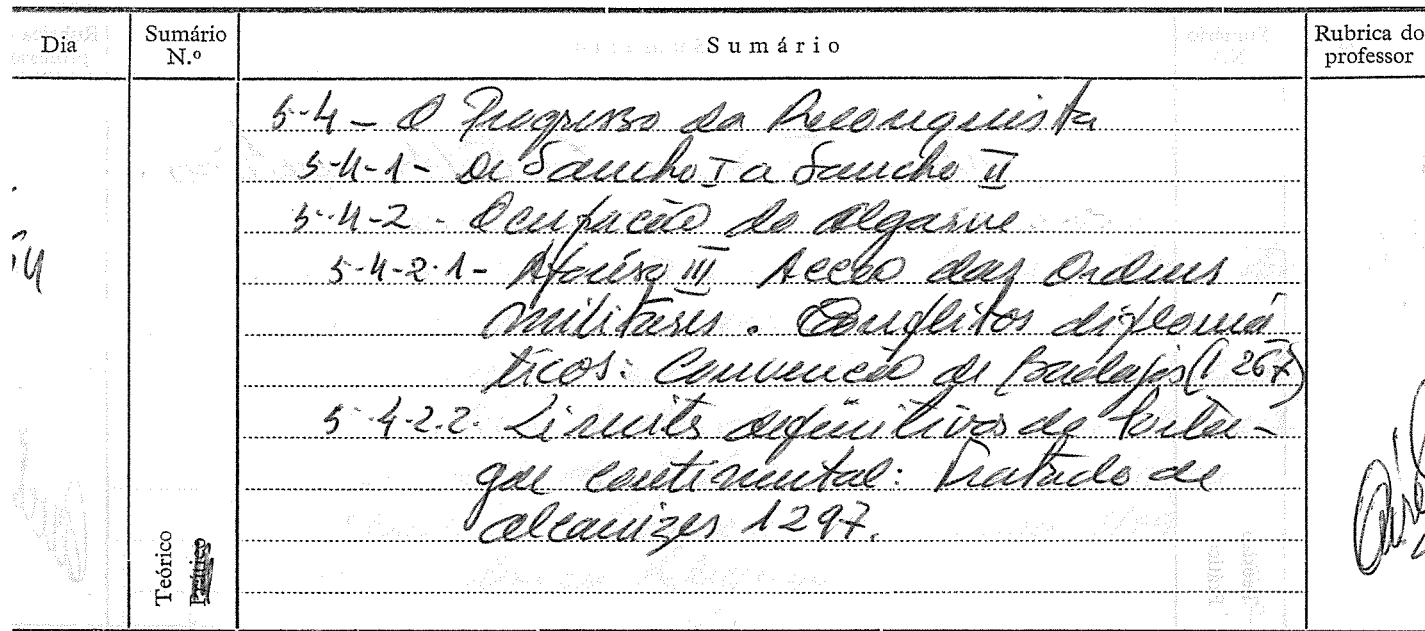 Dia Sumário N.º Sumário Rubrica do professor
5-4 - O Progresso da Reconquista
5-4-1 - De Sancho I a Sancho II
5-4-2 - Ocupação do Algarve
5-4-2-1- Afonso III Acção das Ordens
militares. Conflitos diplomá
ticos: Convenção de Badajós (1267)
5-4-2.2. Limites definitivos de Portu-
gal continental: Tratado de
Alcanizes 1297.
Teórico
Prático